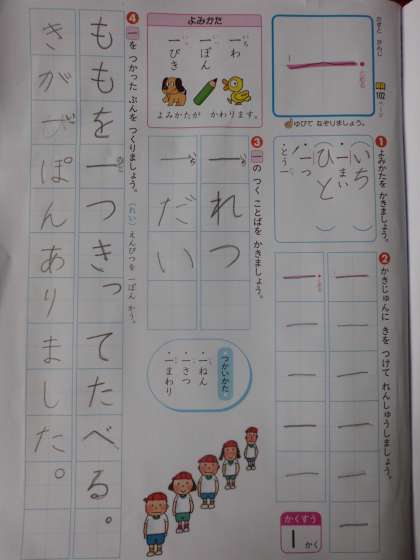 かずと かんじ
102
ページ
ゆびで なぞりましょう。
よみかた
一わ
いち
一ぽん
いっ
一ぴき
いっ
よみかたが かわります。
1 よみかたを かきましょう。
いち
・一まい
ひと
・一つ
・とう一
2 かきじゅんに きを つけて れんしゅうしましょう。
かくすう
1かく
3 一の つく ことばを かきましょう。
一れつ
いち
一だい
いち
つかいかた
・一ねん
・一さつ
・一まわり
4 一を つかった ぶんを つくりましょう。
(れい)えんぴつを 一ぽん かう。
ももを一つきってたべる。
ひと
きがぴぽんありました。